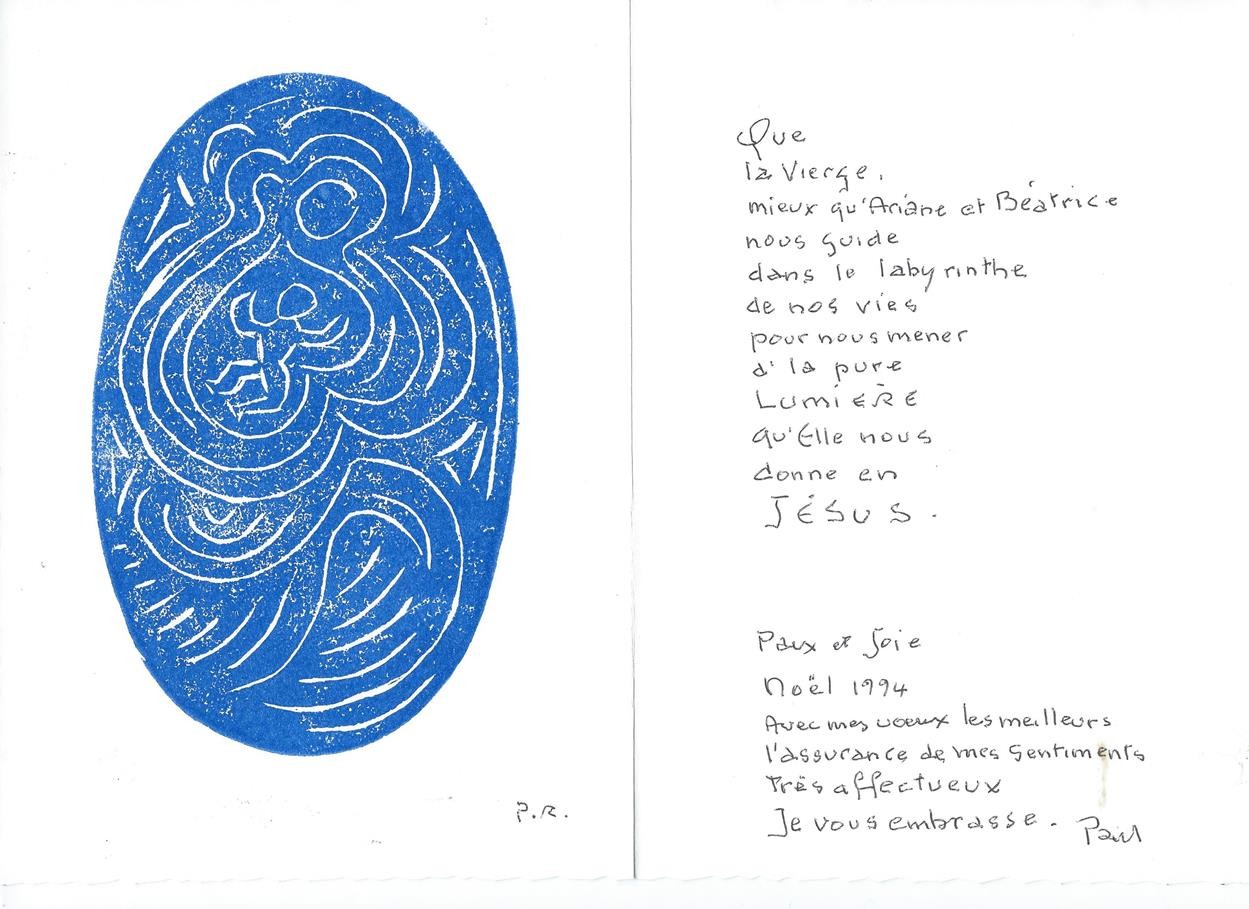 P.R.
Que
la Vierge,
mieux qu'Ariane et Béatrice
nous guide
dans le labyrinthe
de nos vies
pour nous mener
à la pure
LUMIÈRE
qu'Elle nous
donne en
JÉSUS.
Paix et Joie
Noël 1994
Avec mes voeux les meilleurs
l'assurance de mes sentiments
très affectueux
Je vous embrasse. Paul